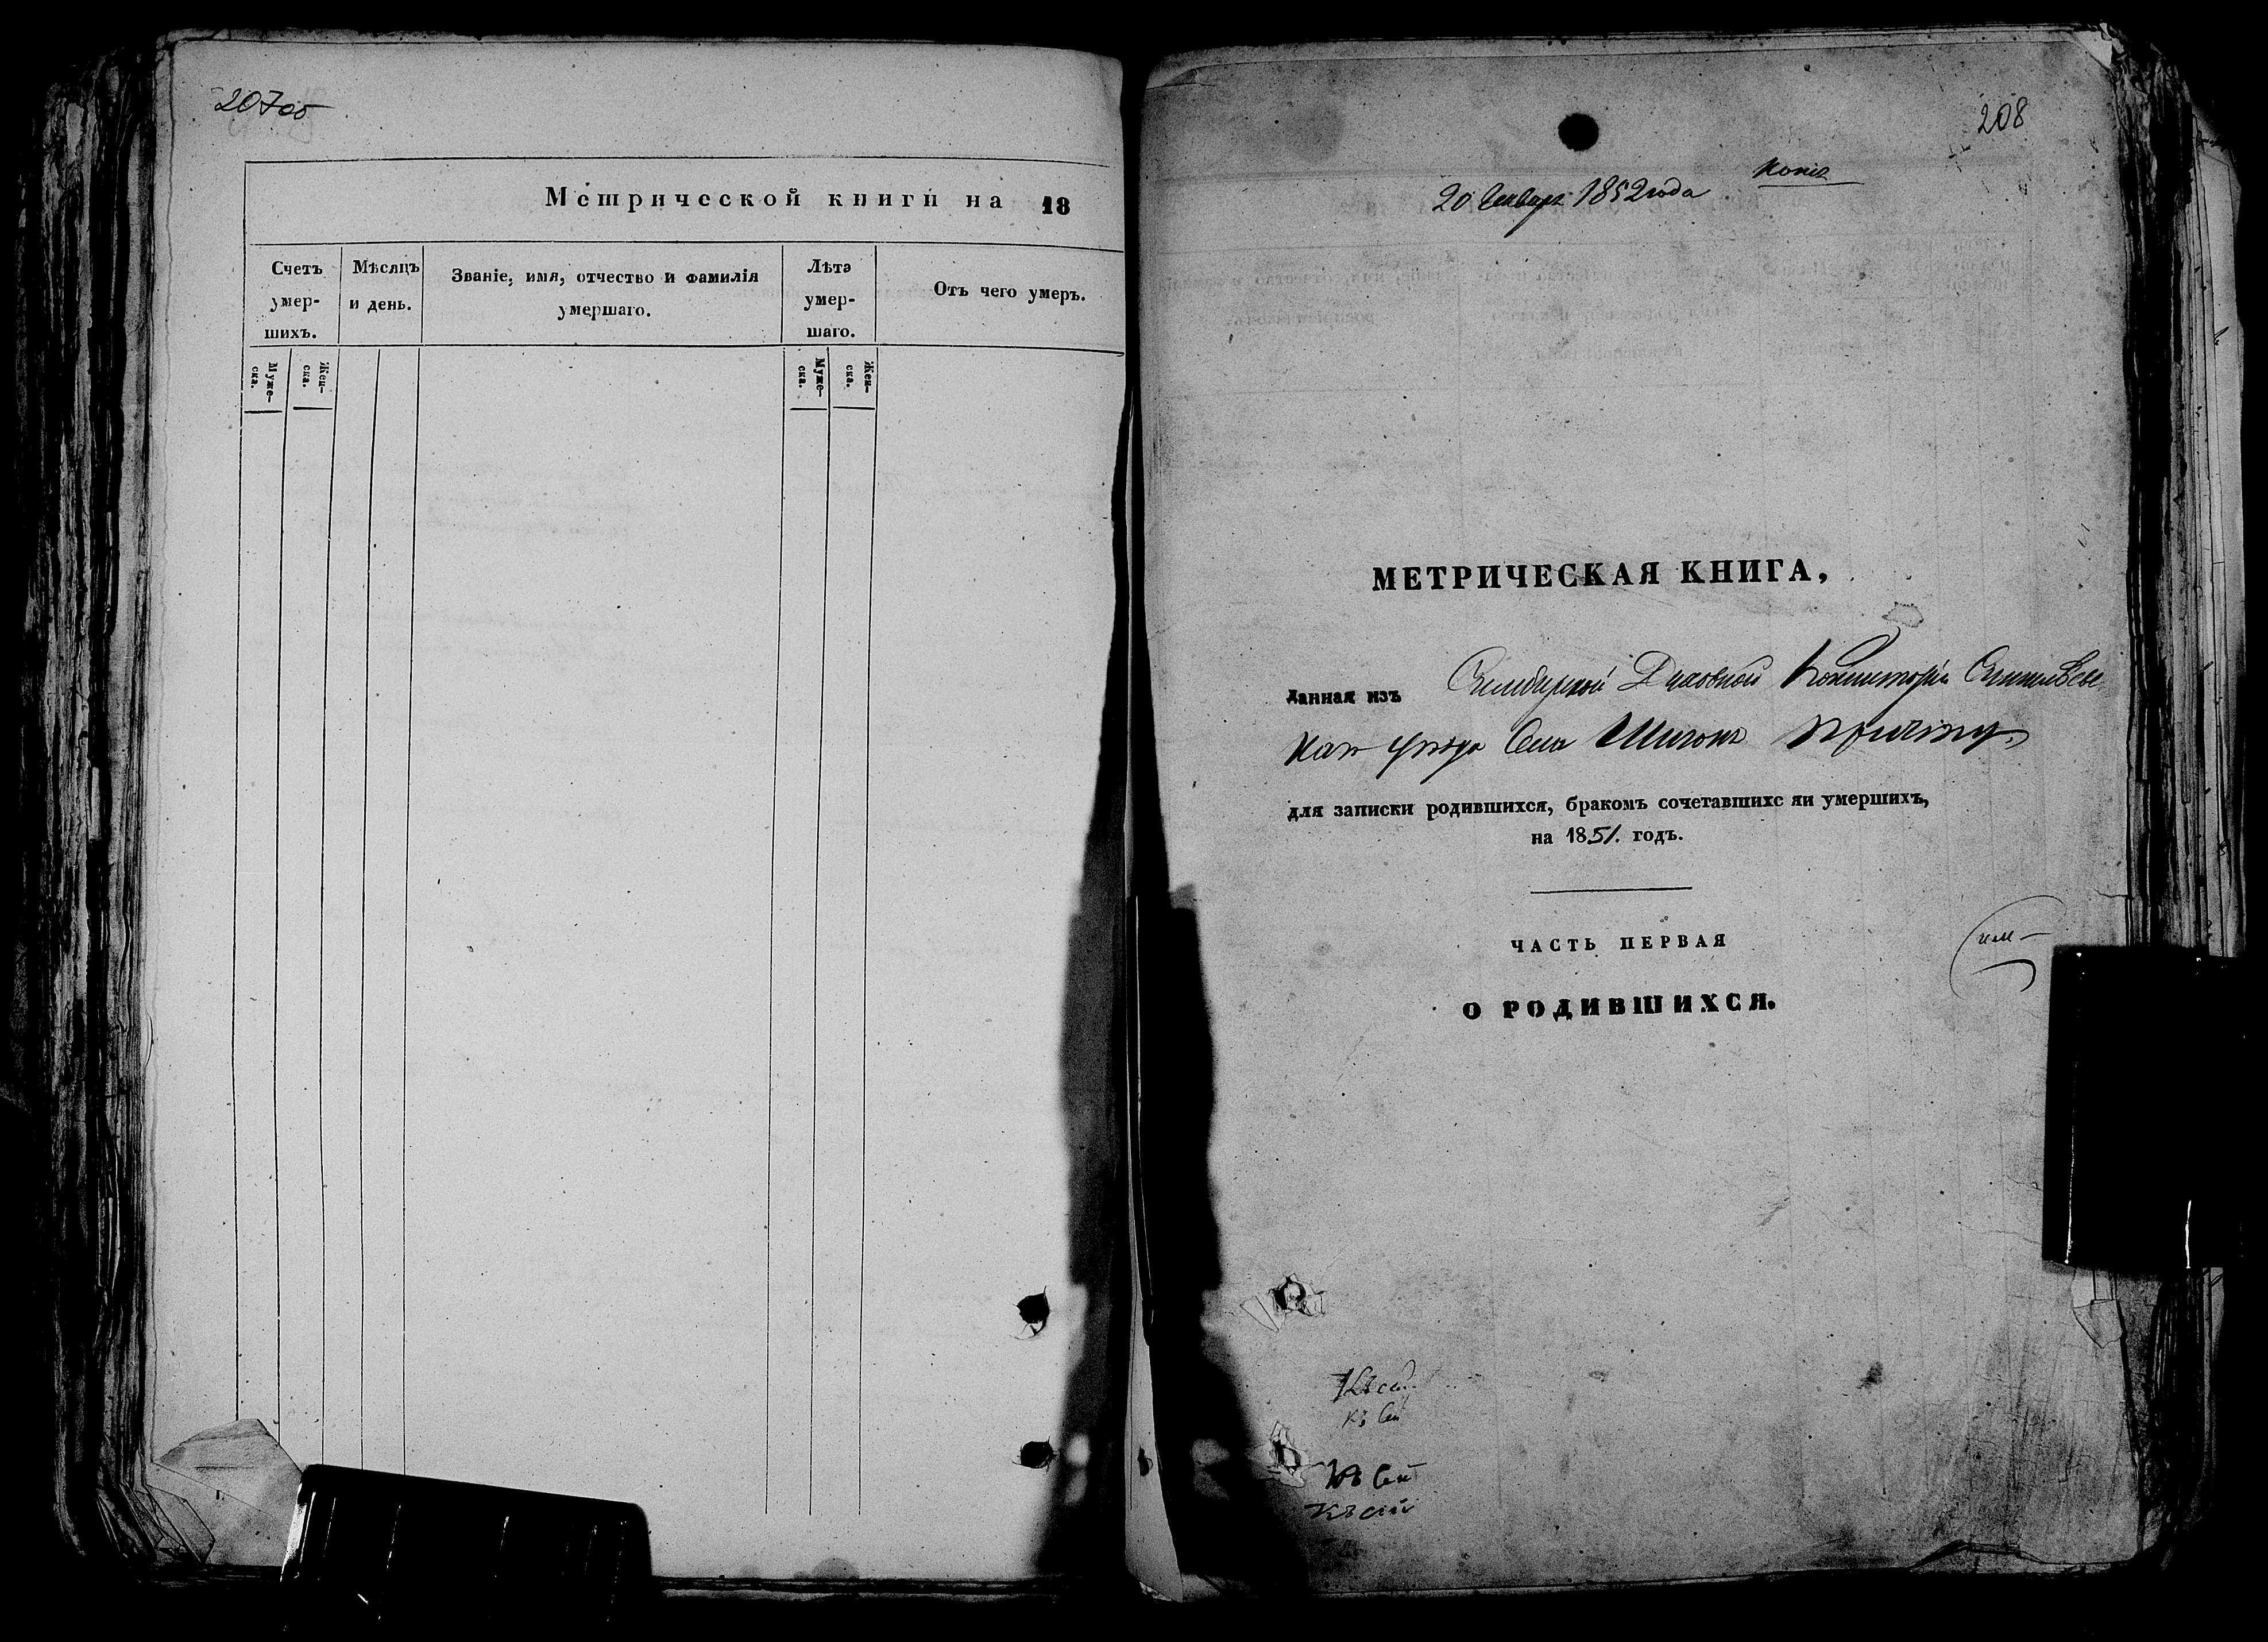 207об
Метрической книги на 18
Счетъ умер-шихъ.
Мѣсяцъ и день.
Званіе, имя, отчество и фамилія умершаго.
Лѣта умер-шаго.
Отъ чего умеръ.
Муже-ска.
Жен-ска.
Муже-ска.
Жен-ска.
208
Копія
20 Января 1852 года
МЕТРИЧЕСКАЯ КНИГА,
данная изъ Симбирской Духовной Консисторіи Сенгилеевс
каго уѣзда Села Шигонъ причту
для записки родившихся, бракомъ сочетавшихс яи умершихъ,
на 1851. годъ.
ЧАСТЬ ПЕРВАЯ
О РОДИВШИХСЯ.
Къ сей
къ сей
Къ сей
Къ сей